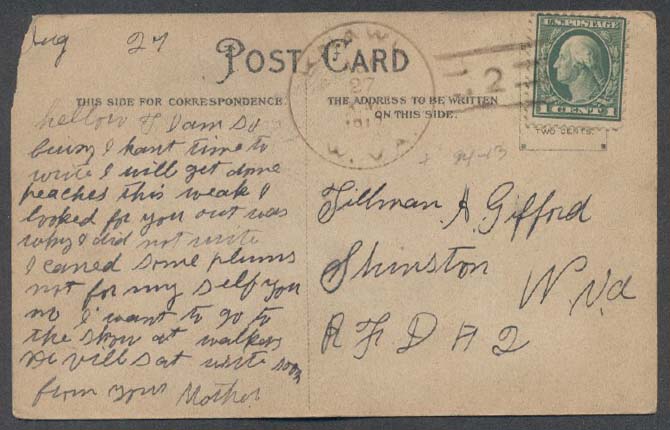 Aug 27
POST CARD
THIS SIDE FOR CORRESPONDENCE.
THE ADDRESS TO BE WRITTEN
ON THIS SIDE.
U.S. POSTAGE
1 CENT 1
TWO CENTS.
27
W. VA.
2
hellow I am so
busy I hant time to
write I will get some
peaches this weak I
looked for you out was
why I did not write
I caned some plums
not for my self you
no I want to go to
the show at walkers
vill sat write soon
from your Mother
Tillman A. Gifford
Shinston
W. Va
R F D # 2